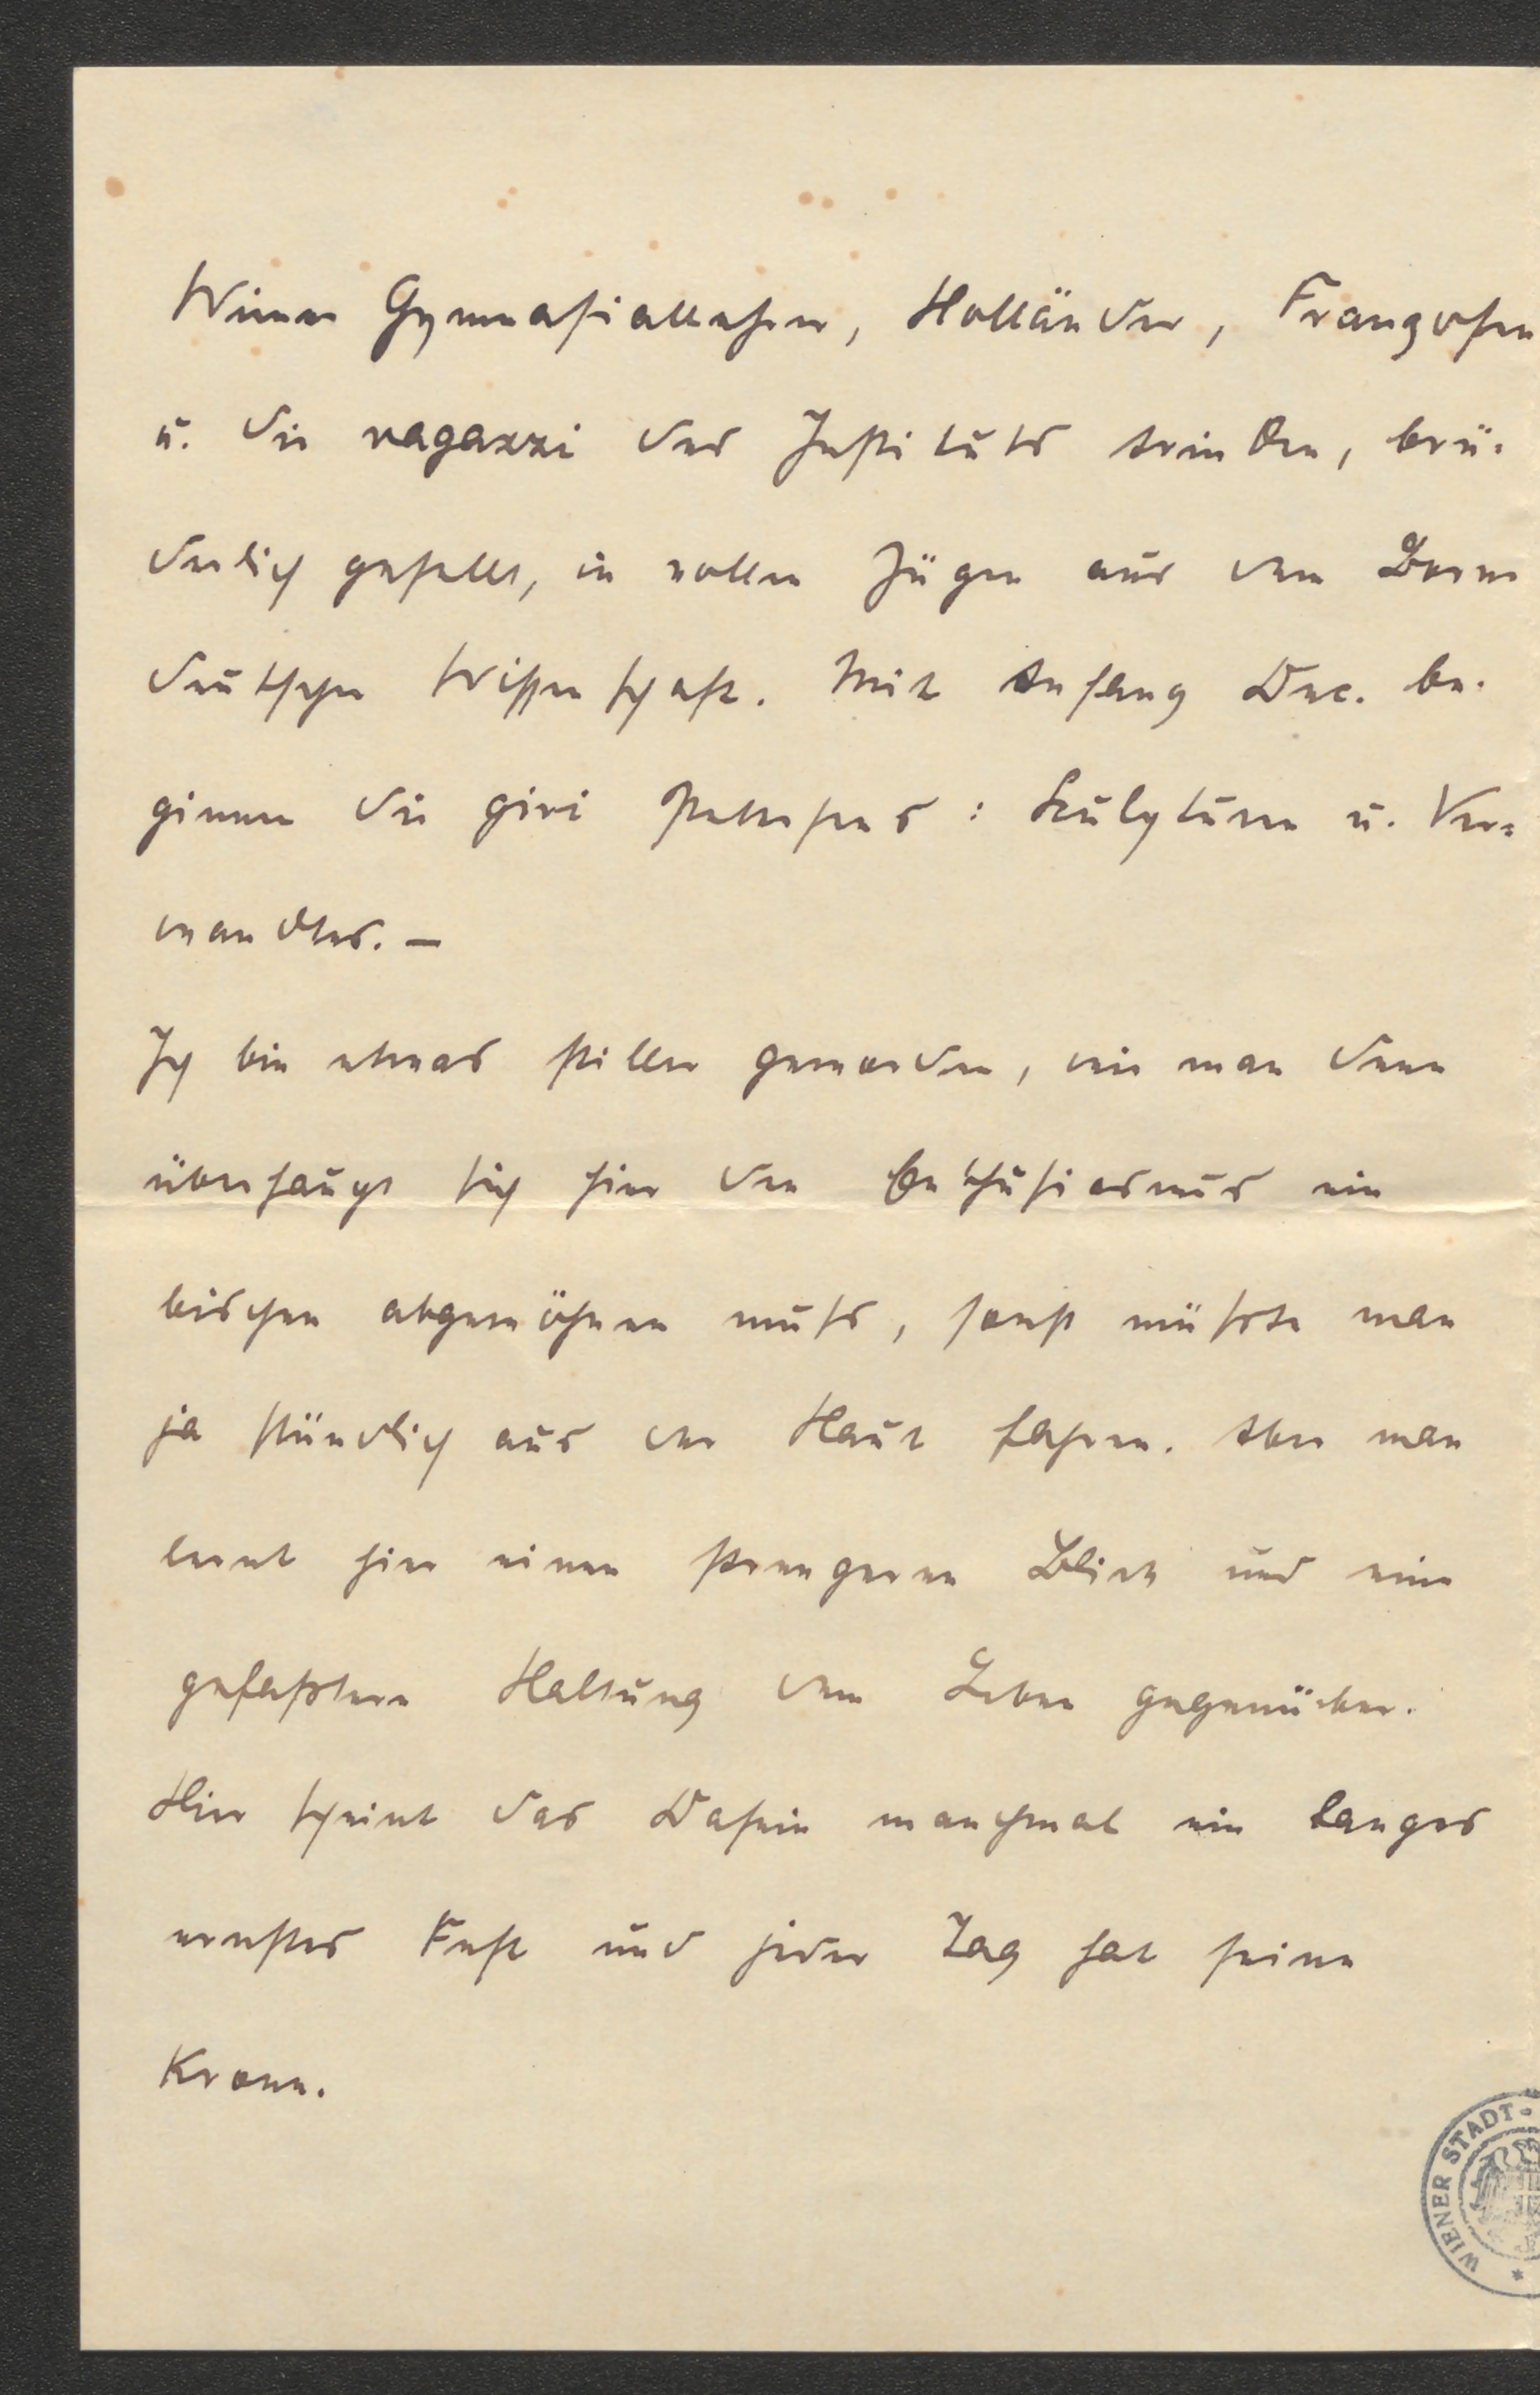 Wiener Gymnasiallehrer, Holländer, Franzosen
u. die ragazzi des Instituts trinken, brü-
derlich gesellt, in vollen Zügen aus dem Borne
deutscher Wissenschaft. Mit Anfang Dec. be-
ginnen die giri Petersens: Skulpturen u. Ver=
wandtes. —
Ich bin etwas stiller geworden, wie man denn
überhaupt sich hier den Enthusiasmus ein
bischen abgewöhnen muß, sonst müßte man
ja stündlich aus der Haut fahren. Aber man
lernt hier einen strengeren Blick und eine
gefaßtere Haltung dem Leben gegenüber.
Hier scheint das Dasein manchmal ein langes
ernstes Fest und jeder Tag hat seine
Krone.
WIENER STADT-